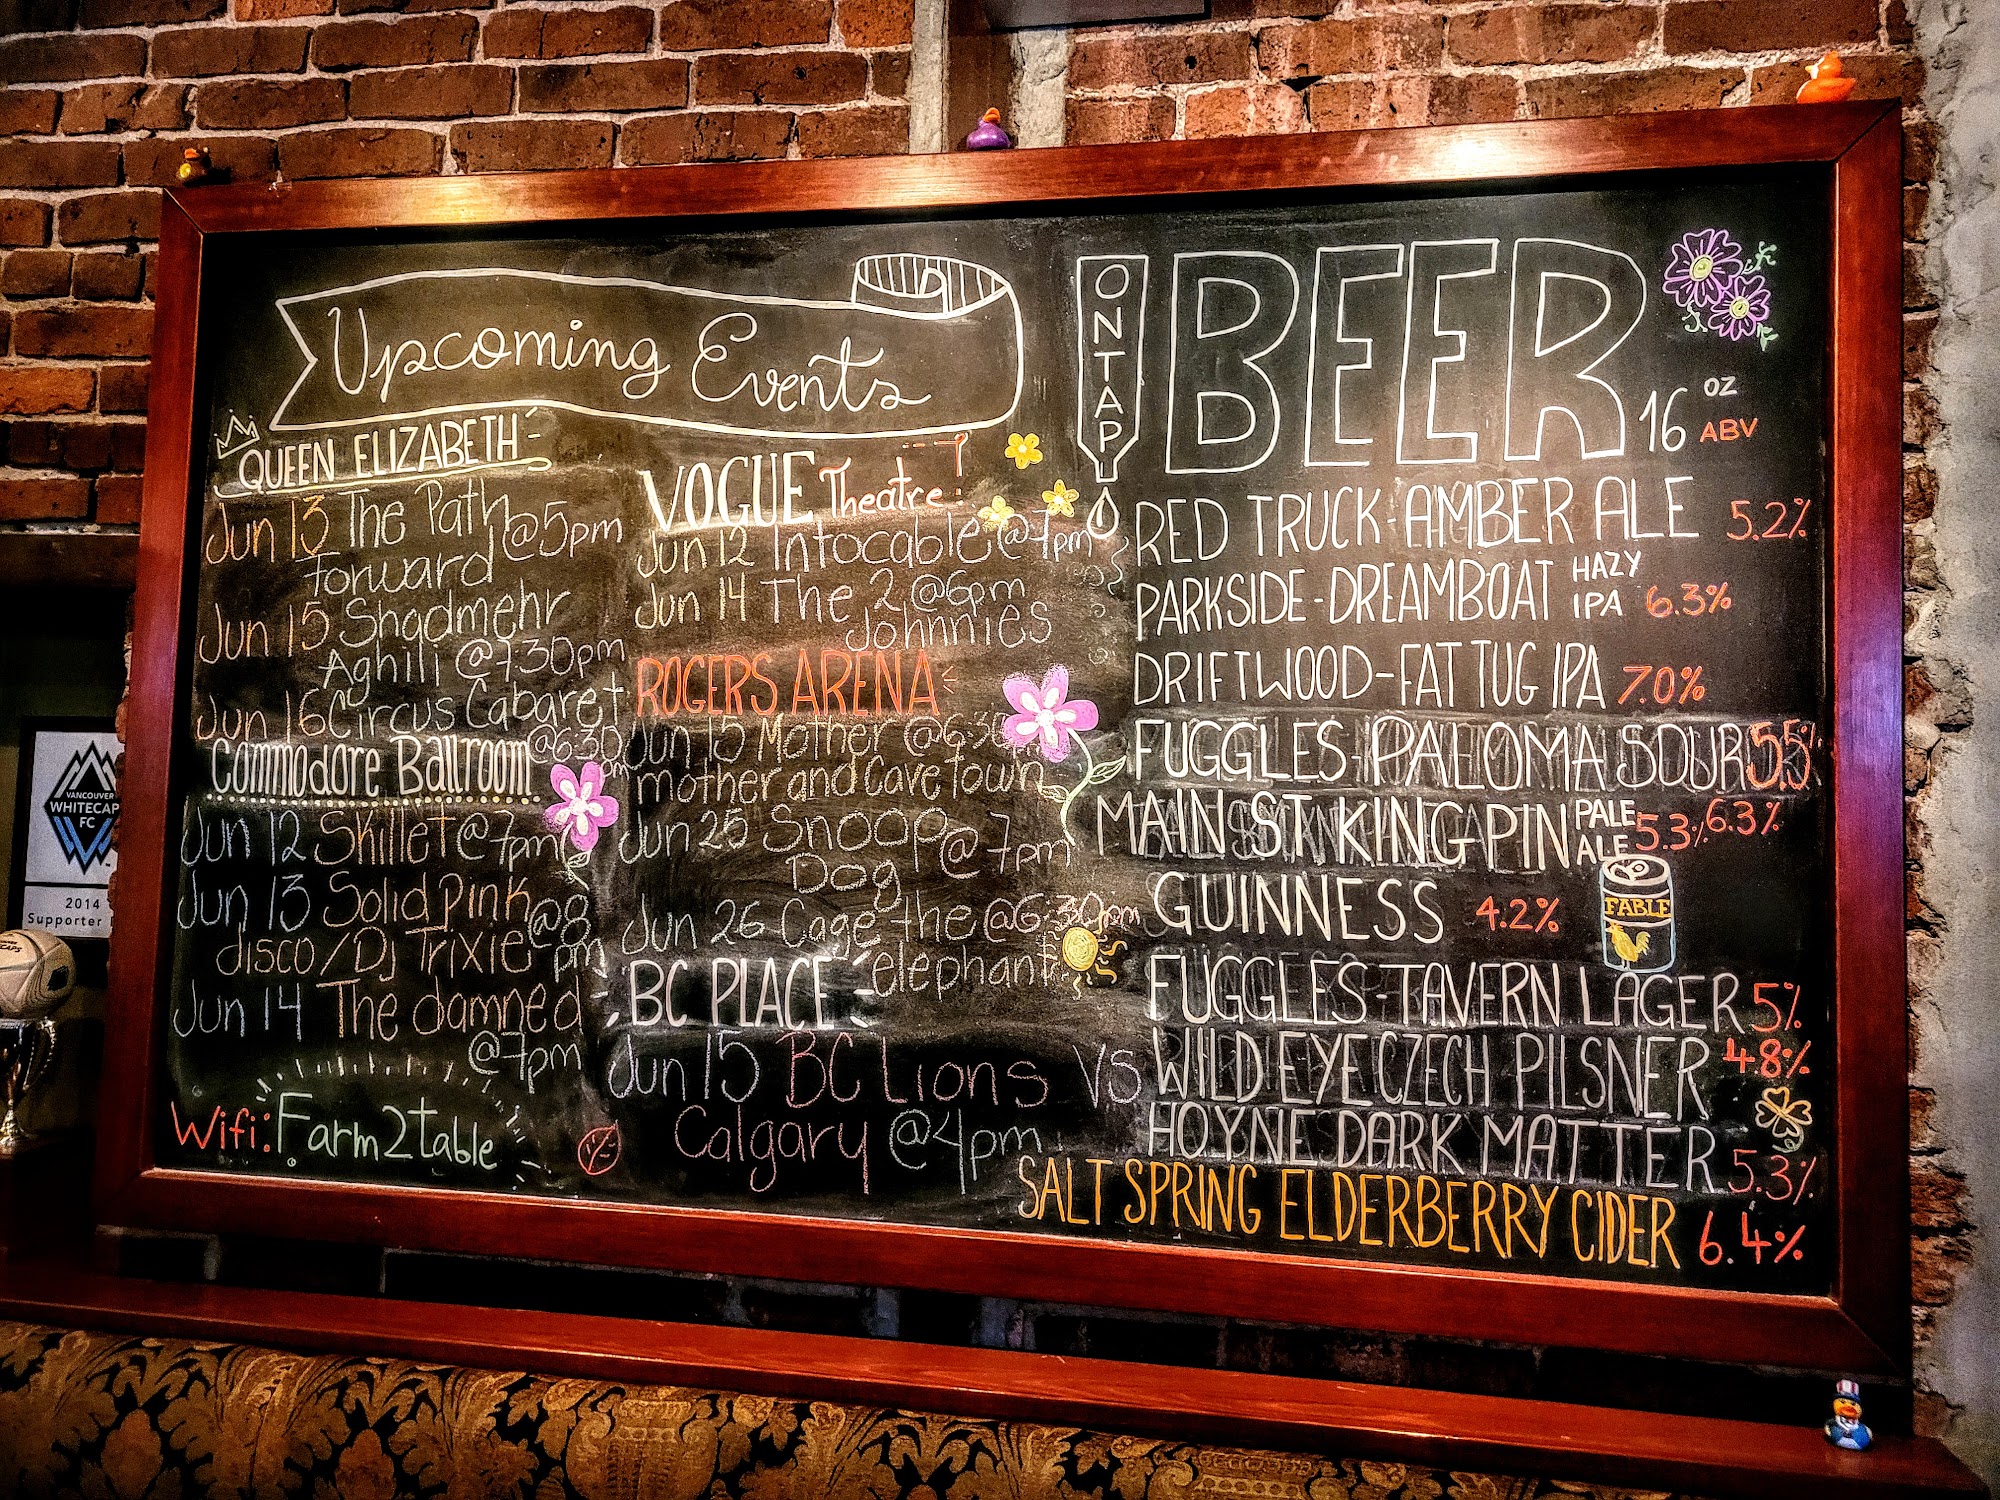 Upcoming Events
QUEEN ELIZABETH
Jun 13 The Path
forward @5pm
Jun 15 Shadmehr
Aghili @7:30pm
Jun 16 Circus Cabaret
@6:30pm
Commodore Ballroom
Jun 12 Skillet @7pm
Jun 13 Solid Pink
disco/DJ Trixie @8pm
Jun 14 The damned
@7pm
Wifi: Farm2table
VOGUE Theatre!
Jun 12 Intocable @7pm
Jun 14 The 2 @6pm
Johnnies
ROGERS ARENA
Jun 15 Mother @6:30
mother and Cavetown
Jun 25 Snoop @7pm
Dog
Jun 26 Cage the @6:30pm
elephant
BC PLACE
Jun 15 BC Lions Vs
Calgary @4pm
ON TAP
BEER
16 OZ
ABV
RED TRUCK-AMBER ALE 5.2%
PARKSIDE-DREAMBOAT HAZY IPA 6.3%
DRIFTWOOD-FAT TUG IPA 7.0%
FUGGLES PALOMA SOUR 5.5%
MAIN ST KING PIN PALE ALE 5.3% 6.3%
GUINNESS 4.2%
FABLE
FUGGLES-TAVERN LAGER 5%
WILD EYE CZECH PILSNER 4.8%
HOYNE DARK MATTER 5.3%
SALT SPRING ELDERBERRY CIDER 6.4%
VANCOUVER
WHITECAP
FC
2014
Supporter